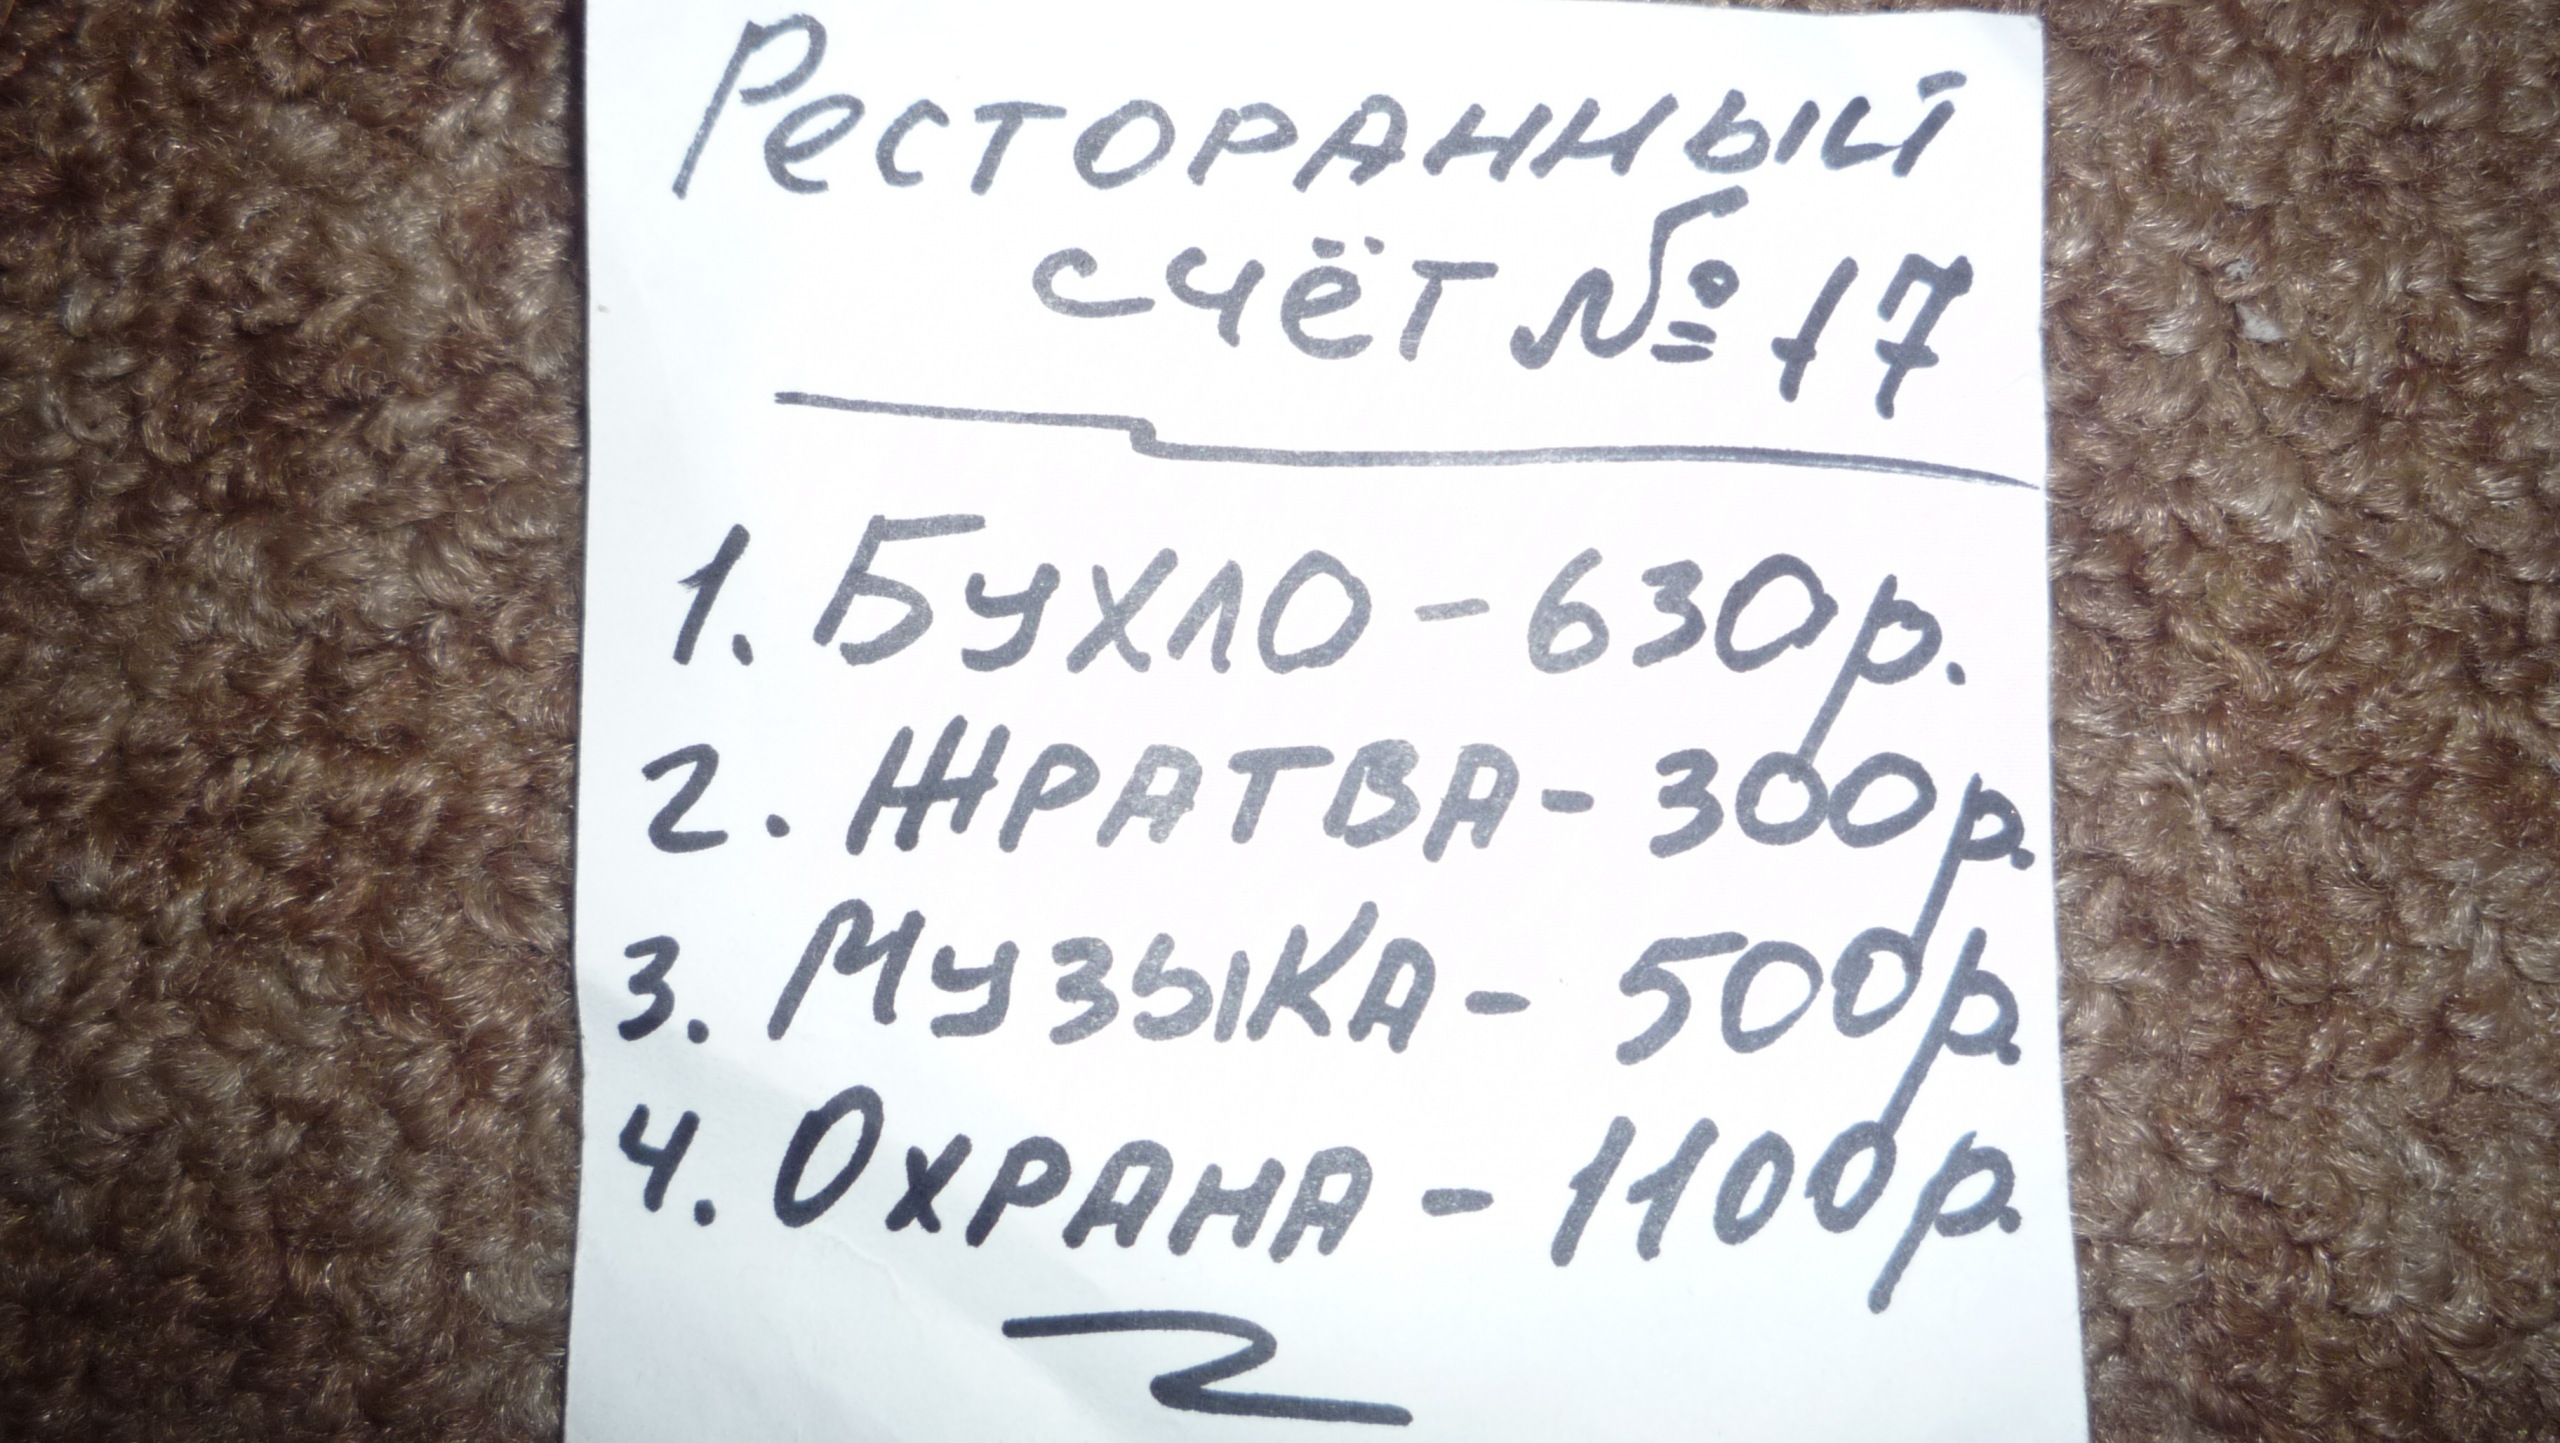 Ресторанный
счёт № 17
1. Бухло - 630р.
2. Жратва - 300р.
3. Музыка - 500р.
4. Охрана - 1100р.